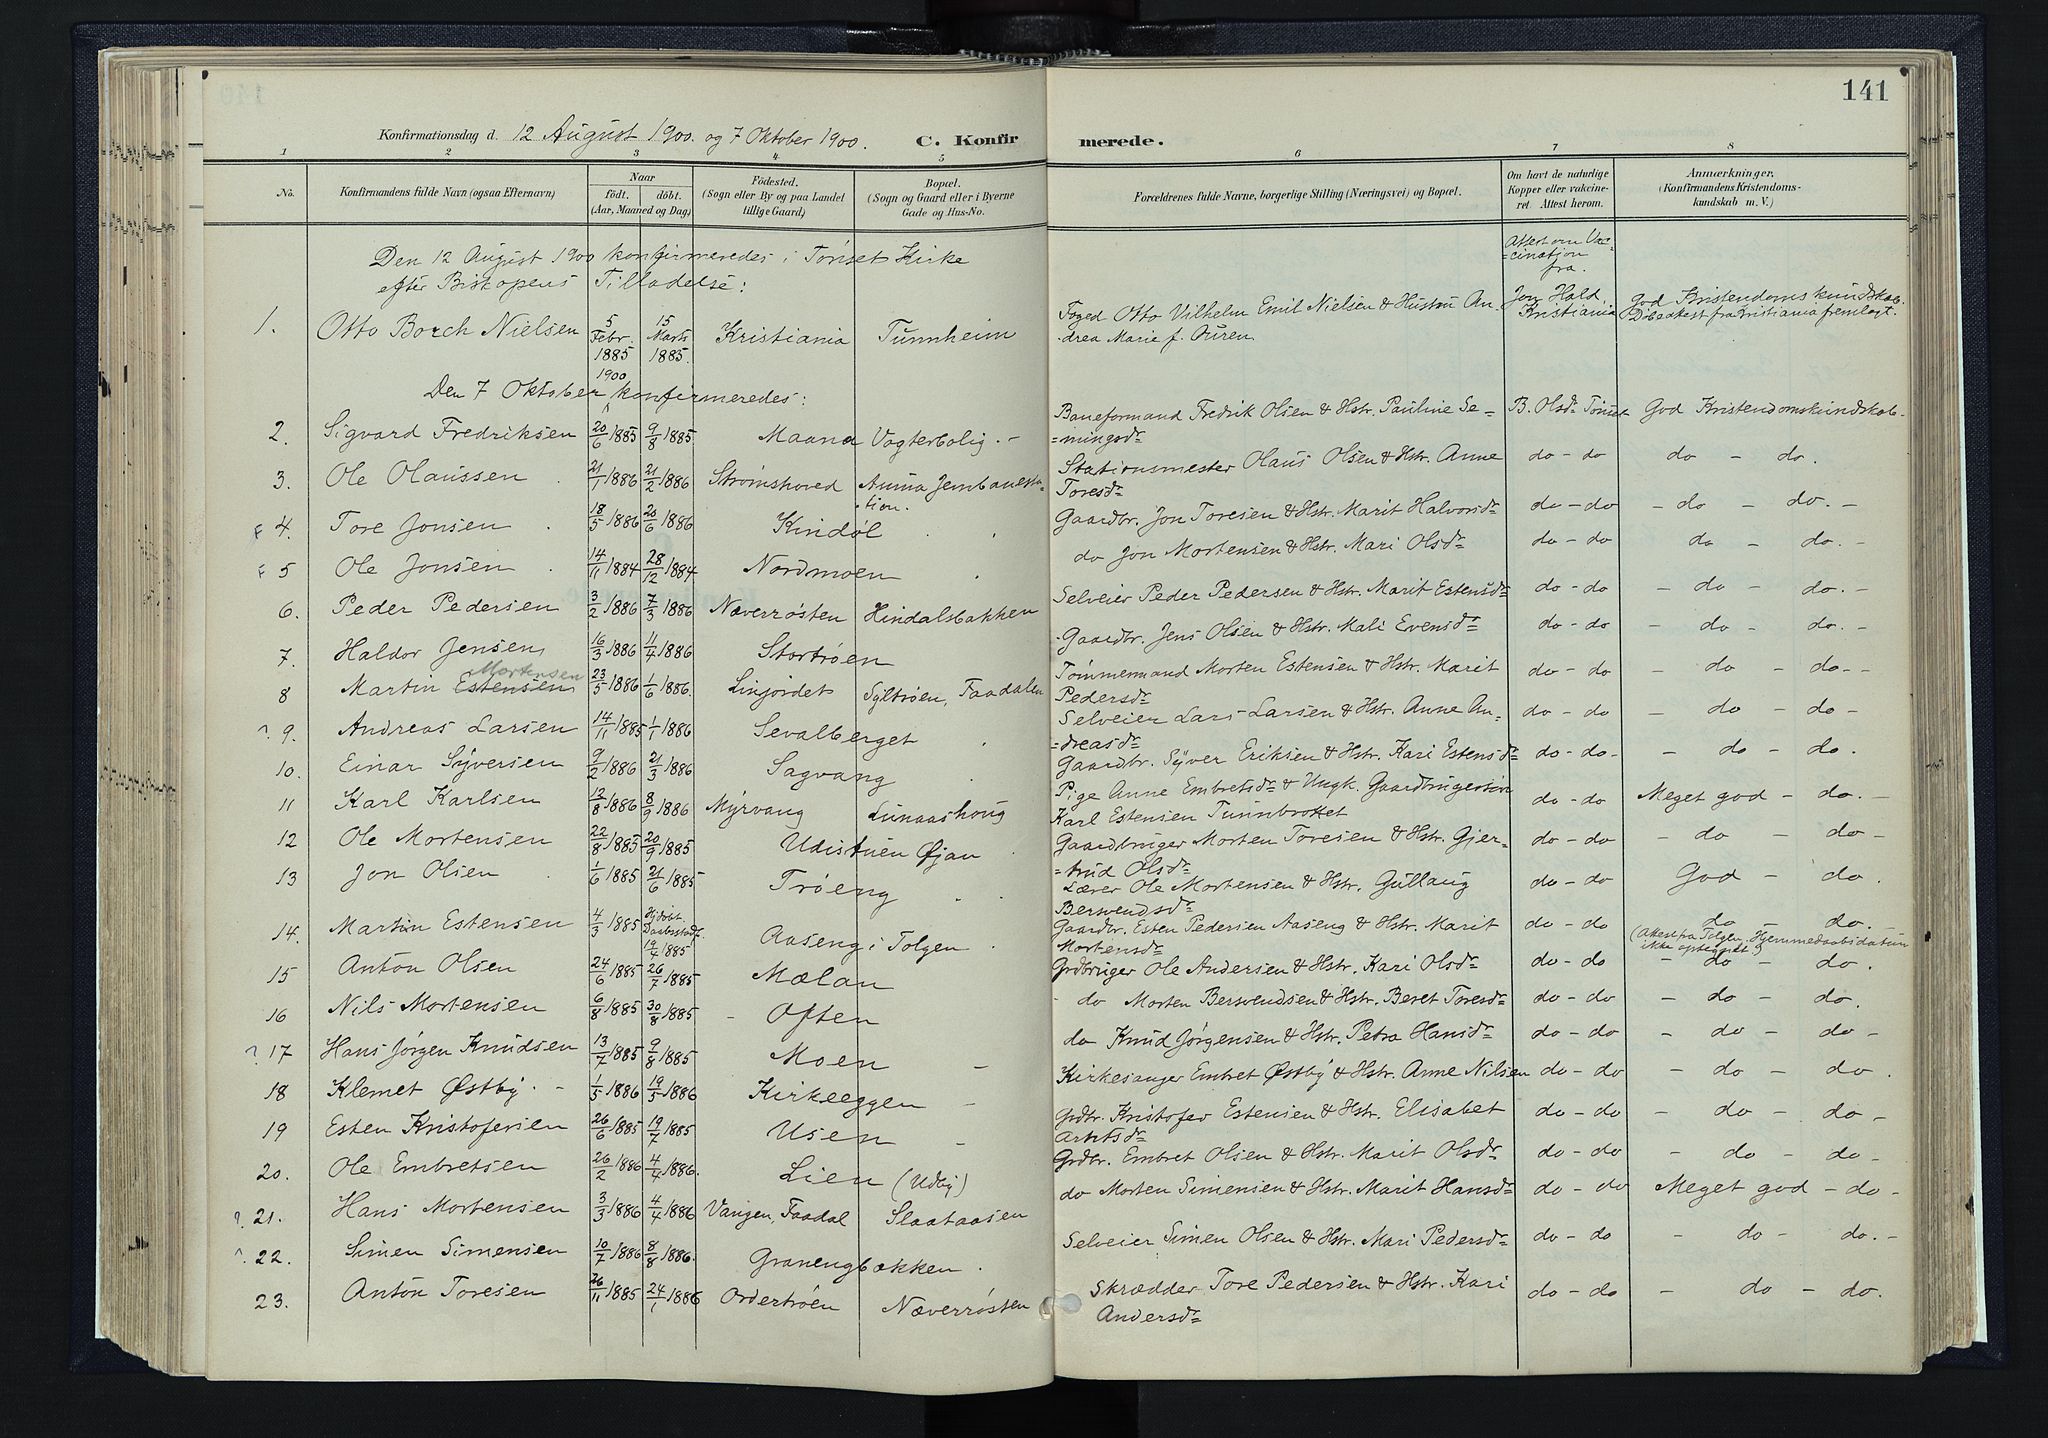 141
Konfirmationsdag d. 12 August 1900. og 7 Oktober 1900. C. Konfirmerede.
1 2 3 4 5 6 7 8
No. Konfirmandens fulde Navn (ogsaa Efternavn) Naar født. døbt. (Aar, Maaned og Dag) Fødested. (Sogn eller By og paa Landet tillige Gaard.) Bopæl. (Sogn og Gaard eller i Byerne Gade og Hus-No. Forældrenes fulde Navne, borgerlige Stilling (Næringsvei) og Bopæl. Om havt de naturlige Kopper eller vakcineret. Attest herom. Anmærkninger. (Konfirmandens Kristendomskundskab m. V.)
Den 12 August 1900 konfirmeredes i Tønset Kirke
efter Biskopens Tilladelse:
Attest om Vac=
=cination
fra.
1. Otto Borch Nielsen 5 Febr. 1885 15 Marts 1885. Kristiania Tunnheim Foged Otto Vilhelm Emil Nielsen & Hustru An-
drea Marie f. Auren. Jon Hald, Kristiania God Kristendomskundskab. Dåbsattest fra Kristiania fremlagt.
1900
Den 7 Oktober konfirmeredes:
2. Sigvard Fredriksen 20/6 1885 9/8 1885 Maana Vogterbolig. - Baneformand Fredrik Olsen & Hstr. Pauline Se=
=mingsdr B. Olsdr Tønset God Kristendomskundskab.
3. Ole Olaussen 21/1 1886 21/2 1886 Strømshoved Auma Jernbanesta-
tion. Stationsmester Olaus Olsen & Hstr. Anne
Toresdr do - do do - do.
F 4. Tore Jonsen 18/5 1886 20/6 1886 Kindøl Gaardbr. Jon Toresen & Hstr. Marit Halvorsdr do - do - do - do. -
F 5 Ole Jonsen 14/11 1884 28/12 1884 Nordmoen do Jon Mortensen & Hstr. Mari Olsdr do - do do - do. -
6. Peder Pedersen 3/2 1886 7/3 1886 Næverrøsten Hindalsbakken Selveier Peder Pedersen & Hstr. Marit Estensdr do - do - do - do. -
7. Haldor Jensen 16/3 1886 11/4 1886 Stortrøen Gaardbr. Jens Olsen & Hstr. Mali Evensdr do - do - do - do. -
Mortensen
8 Martin Estensen 23/5 1886 1/6 1886. Linjordet Syltrøen, Faadalen Tømmermand Morten Estensen & Hstr. Marit
Pedersdr do - do - do - do - -
9. Andreas Larsen 14/11 1885 1/1 1886 Sevalberget Selveier Lars Larsen & Hstr. Anne An-
=dreasdr do - do - do - do -
10. Einar Syversen 9/2 1886 21/3 1886 Sagvang Gaardbr. Syver Eriksen & Hstr. Kari Estensdr do - do - - do - do.
11 Karl Karlsen 12/8 1886 8/9 1886 Myrvang Lunaashoug Pige Anne Embretsdr & Ungk. Gaardbrugersøn
Karl Estensen Tunnbrottet do - do Meget god - do. -
12 Ole Mortensen 22/8 1885 20/9 1885 Udistuen Øjan Gaardbruger Morten Toresen & Hstr. Gjer-
=trud Olsdr do - do - do - do -
13 Jon Olsen 1/6 1885 21/6 1885 Trøeng Lærer Ole Mortensen & Hstr. Gullaug
Bersvendsdr do - do God - do.
14. Martin Estensen 4/3 1885 Hjdøbt. 19/4 1885 Aaseng i Tolgen Gaardbr. Esten Pedersen Aaseng & Hstr. Marit
Mortensdr do - do do do. -
(Attest fra Tolgen, Hjemmedaabsdatum
ikke opteignet.)
15 Anton Olsen 24/6 1885 26/7 1885 Mælan Grdbruger Ole Andersen & Hstr. Kari Olsdr do - do - do - do.
16 Nils Mortensen 6/8 1885 30/8 1885 - Often do Morten Bersvendsen & Hstr. Beret Toresdr do - do - do - do.
17 Hans Jørgen Knudsen 13/7 1885 9/8 1885 Moen - do Knud Jørgensen & Hstr. Petra Hansdr do - do - do - do -
18 Klemet Østby. - 1/5 1886 19/5 1886 Kirkeeggen - Kirkesanger Embret Østby & Hstr. Anne Nilsen do - do - do - do.
19 Esten Kristofersen 26/6 1885 19/7 1885 Usen - Grdbr. Kristofer Estensen & Hstr. Elisabet
do - do - do - do -
20. Ole Embretsen 26/2 1886 4/4 1886. Lien (Udby) Grdbr. Embret Olsen & Hstr. Marit Olsdr do - do - do - do -
21. Hans Mortensen 3/3 1886 4/4 1886 Vangen, Faadal Slaataasen do Morten Simensen & Hstr. Marit Hansdr do - do Meget god - do -
22. Simen Simensen 10/7 1886 8/8 1886. Granengbækken. Selveier Simen Olsen & Hstr. Mari Pedersdr do - do - do - do. -
23. Anton Toresen 26/11 1885 24/1 1886 Ordertrøen Næverrøsten Skrædder Tore Pedersen & Hstr. Kari
Andersdr do - do - do - do.